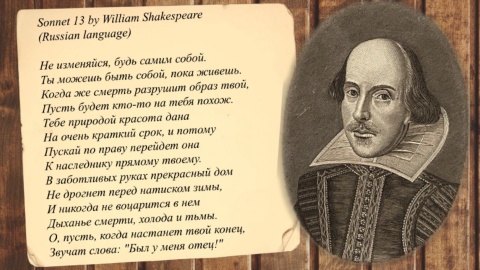 Sonnet 13 by William Shakespeare
(Russian language)
Не изменяйся, будь самим собой.
Ты можешь быть собой, пока живешь.
Когда же смерть разрушит образ твой,
Пусть будет кто-то на тебя похож.
Тебе природой красота дана
На очень краткий срок, и потому
Пускай по праву перейдет она
К наследнику прямому твоему.
В заботливых руках прекрасный дом
Не дрогнет перед натиском зимы,
И никогда не воцарится в нем
Дыханье смерти, холода и тьмы.
О, пусть, когда настанет твой конец,
Звучат слова: "Был у меня отец!"